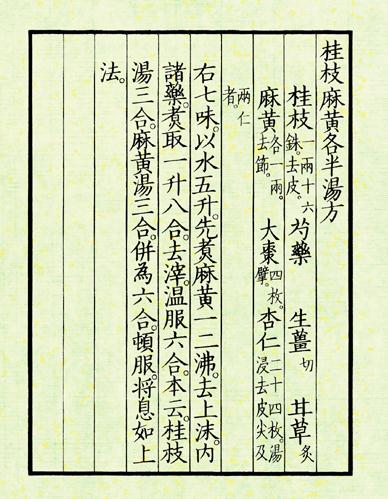 桂枝麻黄各半湯方
桂枝一兩十六銖。去皮。 芍藥 生薑切 甘草炙
麻黄各一兩。去節。 大棗四枚。擘。 杏仁二十四枚。湯浸去皮尖及
兩仁者。
右七味。以水五升。先煑麻黄一二沸。去上沫。内
諸藥。煑取一升八合。去滓。温服六合。本云。桂枝
湯三合。麻黄湯三合。併為六合。頓服。将息如上
法。